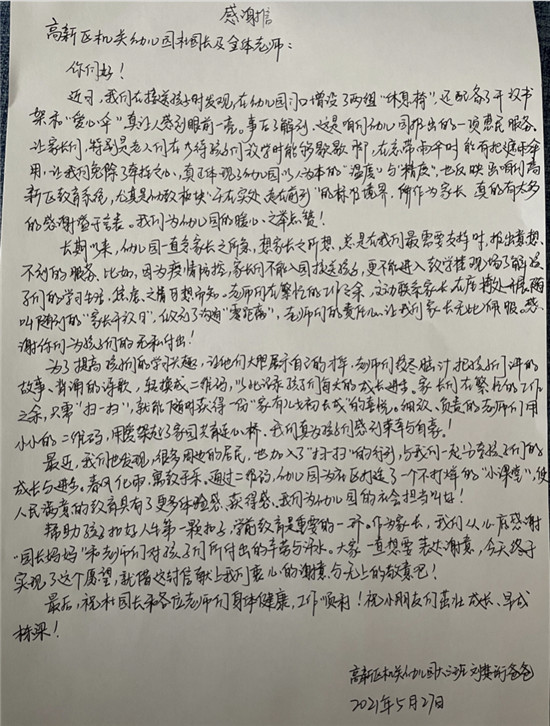 感谢信
高新区机关幼儿园杜园长及全体老师：
你们好！
近日，我们在接送孩子时发现，在幼儿园门口增设了两组“休息椅”，还配备了开放书
架和“爱心伞”真让人感到眼前一亮。事后了解到，这是咱们幼儿园推出的一项惠民服务。
让家长们，特别是老人们在等待孩子们放学时能够歇歇脚，在忘带雨伞时能有把临时伞
用，让我们免除了牵挂之心，真正体现了幼儿园以人为本的“温度”与“精度”，也反映出咱们高
新区教育系统，尤其是幼教板块“干在实处、走在前列”的精神境界，作为家长，真的有太多
的感谢溢于言表。我们为幼儿园的暖心之举点赞！
长期以来，幼儿园一直急家长之所急，想家长之所想，总是在我们最需要支持时，推出意想
不到的服务。比如，因为疫情防控，家长们不能入园接送孩子，更不能进入教学楼现场了解孩
子们的学习生活，焦虑之情可想而知。老师们在繁忙的工作之余，主动联系家长，在
叫随到的“家长开放日”，做到了沟通“零距离”，老师们的责任心，让我们家长无比佩服，感
谢你们为孩子们的无私付出！
为了提高孩子们的学习兴趣，让他们大胆展示自己的才华，老师们绞尽脑汁，把孩子们讲的
故事、背诵的诗歌，转换成二维码，以此记录孩子们每天的成长进步。家长们在繁忙的工作
之余，只需“扫一扫”，就能随时获得一份“家有儿女初长成”的喜悦。细致、负责的老师们用
小小的二维码，用爱架起了家园共育连心桥。我们真为孩子们感到荣幸与自豪！
最近，我们也发现，很多周边的居民，也加入了“扫一扫”的行列，与我们一起分享孩子们的
成长与进步。春风化雨，寓教于乐。通过二维码，幼儿园为社区打造了一个不打烊的“小课堂”，使
人民满意的教育具有了更多体验感、获得感。我们为幼儿园的社会担当叫好！
帮助孩子扣好人生第一颗扣子，学前教育是重要的一环。作为家长，我们从心底感谢
“园长妈妈”和老师们对孩子们所付出的辛苦与汗水。大家一直想要表达谢意，今天终于
实现了这个愿望，就借这封信献上我们衷心的谢意与无上的敬意吧！
最后，祝杜园长和各位老师们身体健康，工作顺利！祝小朋友们茁壮成长、早成
栋梁！
高新区机关幼儿园大三班 刘 爸爸
2021年5月27日